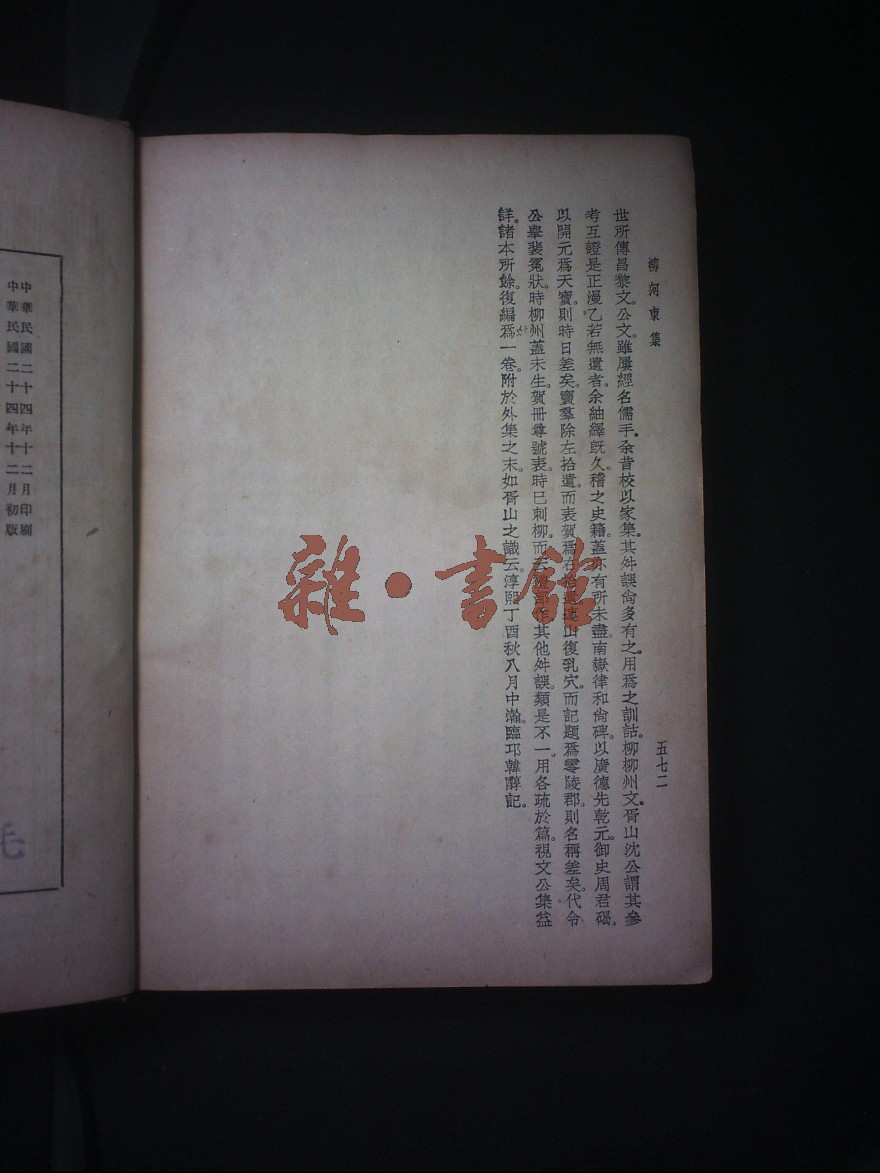 柳河東集
五七二
世所傳昌黎文公文。雖屢經名儒手。余昔校以家集。其舛誤尙多有之。用爲之訓詁。柳柳州文。胥山沈公謂其參
考互證。是正漫乙。若無遺者。余紬繹旣久。稽之史籍。蓋亦有所未盡。南嶽律和尙碑。以廣德先乾元。御史周君碣。
以開元爲天寶。則時日差矣。竇羣除左拾遺。而表賀爲右拾遺。連山復乳穴。而記題爲零陵郡。則名稱差矣。代令
公舉裴冕狀。時柳州蓋未生。賀冊尊號表。時已刺柳。而云禮部作。其他舛誤。類是不一。用各疏於篇。視文公集益
詳。諸本所餘。復編爲一卷。附於外集之末。如胥山之識云。淳熙丁酉秋八月中瀚。臨邛韓醇記。
中華民國二十四年十二月印刷
中華民國二十四年十二月初版
毛
雜·書館